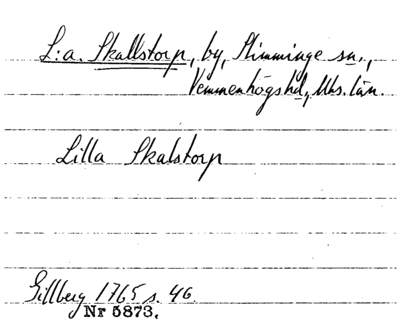 L:a. Skallstorp, by, Slimminge sn.,
Vemmenhögs hd, Mhs. län.
Lilla Skalstorp
Gillberg 1765 s. 46.
Nr 5873.